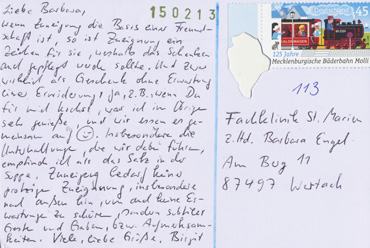 Liebe Barbara,
150213
wenn Zuneigung die Basis einer Freund-
schaft ist, so ist Zuneigen ein
Zeichen für sie, weshalb das Schenken
auch gepflegt werden sollte. Und zwar
wirklich als Geschenke ohne Erwartung
einer Erwiderung; ja, z.B. wenn Du
für mich kochst, was ich im Übrigen
sehr genieße, und wir essen es ge-
meinsam auf ☺. Insbesondere die
Unterhaltungen, die wir dabei führen,
empfinde ich als das Salz in der
Suppe. Zuneigung bedarf keiner
protzigen Zueignung, insbesondere
nach außen hin, um auch keine Er-
wartungen zu schüren, sondern subtiler
Geste und Gaben, bzw. Aufmerksam-
keiten. Viele, liebe Grüße, Birgit
Deutschland 45
125 Jahre
Mecklenburgische Bäderbahn Molli
113
Fachklinik St. Marien
z.Hd. Barbara Engel
Am Bug 11
87497 Wertach